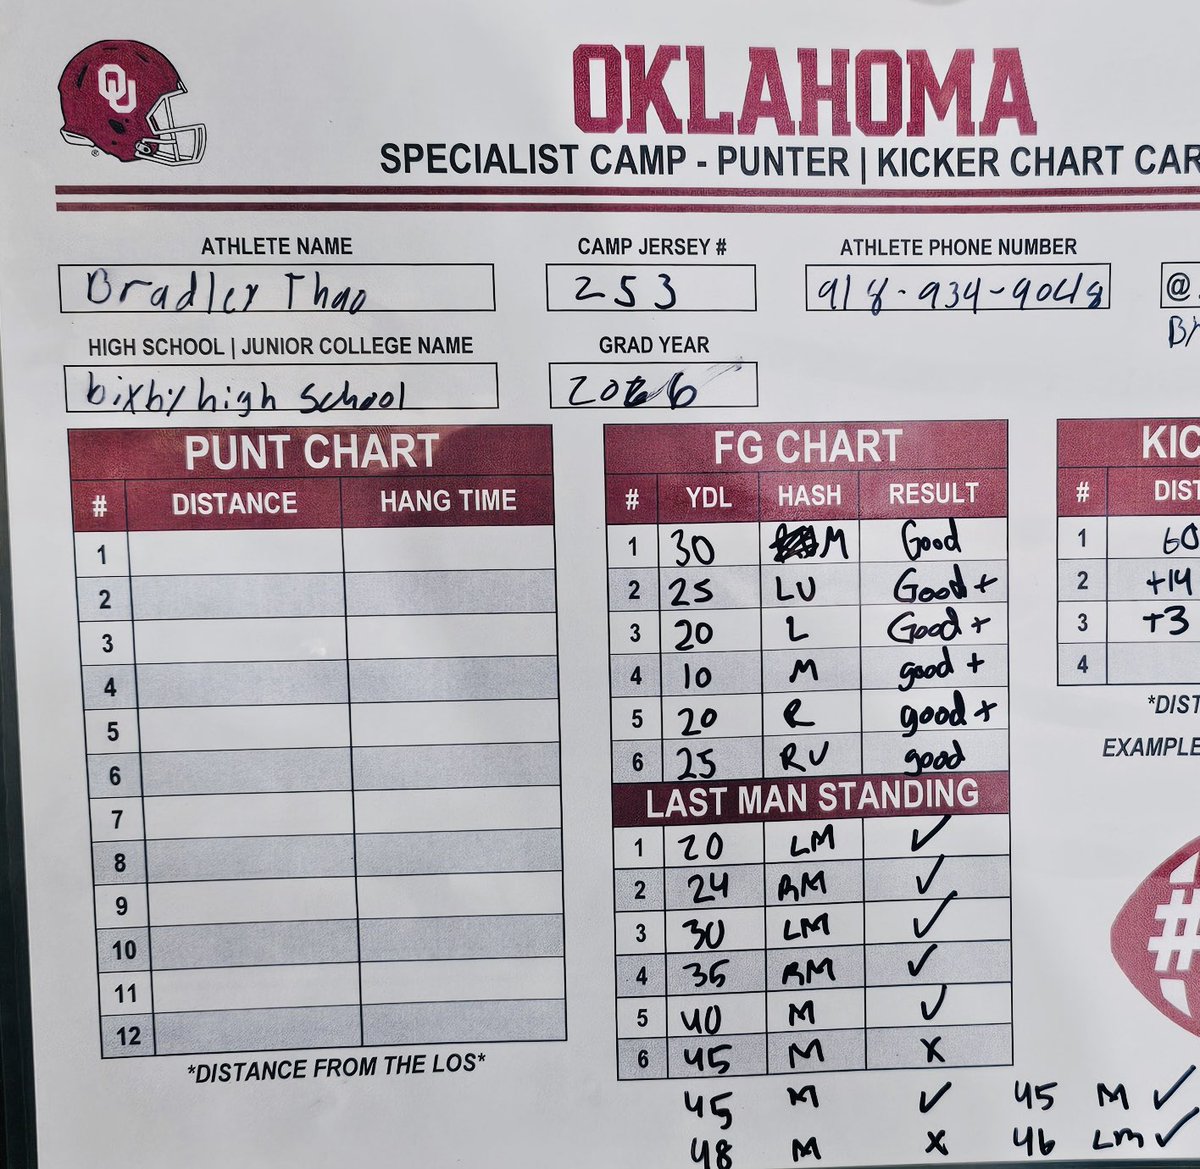 OU
OKLAHOMA
SPECIALIST CAMP - PUNTER | KICKER CHART CAR
ATHLETE NAME CAMP JERSEY # ATHLETE PHONE NUMBER
Bradley Thao 253 918-934-9048 @
HIGH SCHOOL | JUNIOR COLLEGE NAME GRAD YEAR
bixby high school 2026
PUNT CHART
# DISTANCE HANG TIME
1
2
3
4
5
6
7
8
9
10
11
12
*DISTANCE FROM THE LOS*
FG CHART
# YDL HASH RESULT
1 30 M Good
2 25 LU Good +
3 20 L Good +
4 10 M good +
5 20 R good +
6 25 RU good
LAST MAN STANDING
1 20 LM ✓
2 24 RM ✓
3 30 LM ✓
4 35 RM ✓
5 40 M ✓
6 45 M X
45 M ✓ 45 M ✓
48 M X 46 LM ✓
KIC
# DIST
1 60
2 +14
3 +3
4
*DIST
EXAMPLE
#